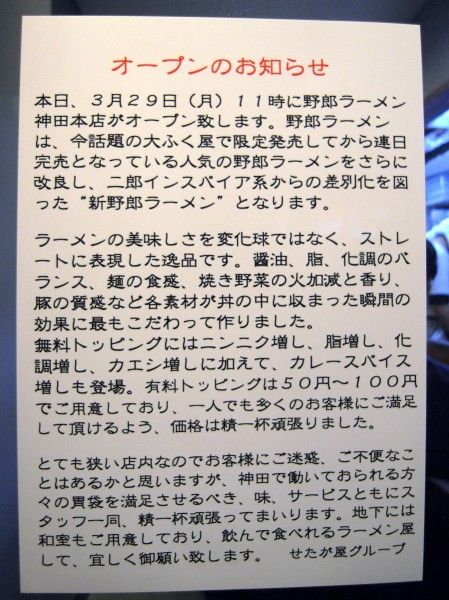 オープンのお知らせ
本日、３月２９日（月）１１時に野郎ラーメン
神田本店がオープン致します。野郎ラーメン
は、今話題の大ふく屋で限定発売してから連日
完売となっている人気の野郎ラーメンをさらに
改良し、二郎インスパイア系からの差別化を図
った“新野郎ラーメン”となります。
ラーメンの美味しさを変化球ではなく、ストレ
ートに表現した逸品です。醤油、脂、化調のバ
ランス、麺の食感、焼き野菜の火加減と香り、
豚の質感など各素材が丼の中に収まった瞬間の
効果に最もこだわって作りました。
無料トッピングにはニンニク増し、脂増し、化
調増し、カエシ増しに加えて、カレースパイス
増しも登場。有料トッピングは５０円～１００円
でご用意しており、一人でも多くのお客様にご満足
して頂けるよう、価格は精一杯頑張りました。
とても狭い店内なのでお客様にご迷惑、ご不便なこ
とはあるかと思いますが、神田で働いておられる方
々の胃袋を満足させるべき、味、サービスともにス
タッフ一同、精一杯頑張ってまいります。地下には
和室もご用意しており、飲んで食べれるラーメン屋
して、宜しく御願い致します。　せたが屋グループ